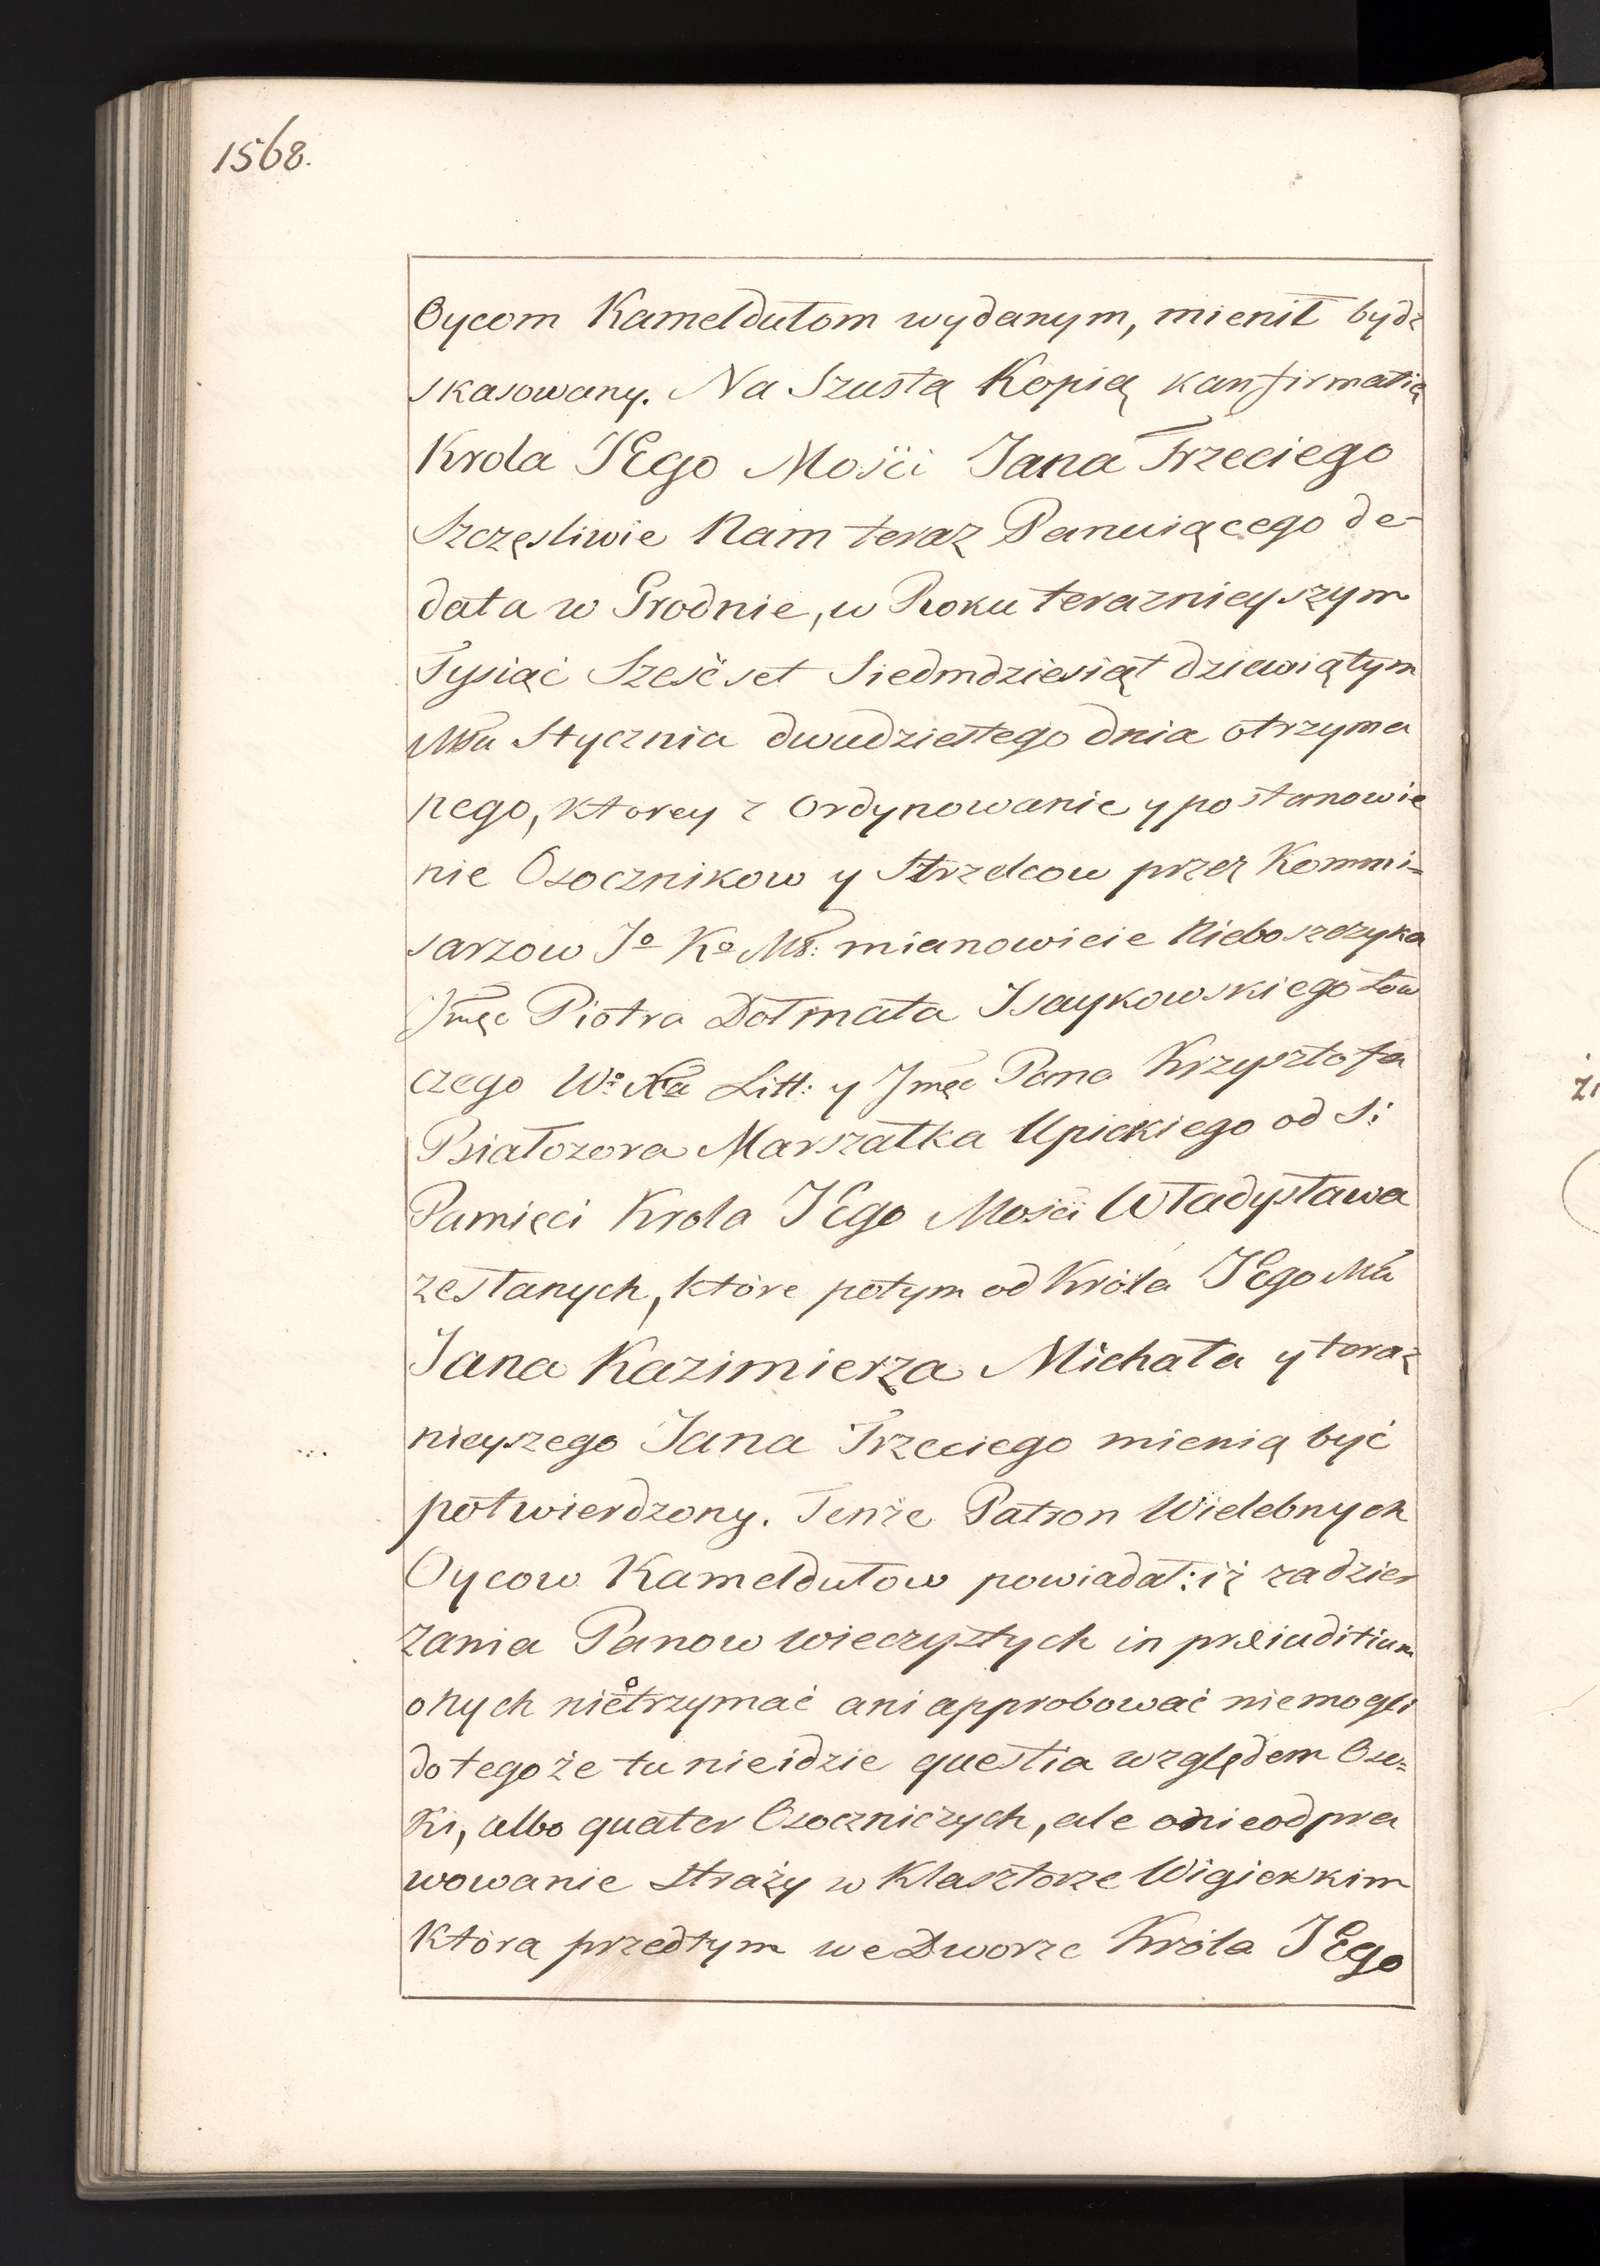 1568.
Oycom Kameldułom wydanym, mienił bydz
skasowany. Na Szustą Kopią kanfirmatią
Krola JEgo Mości Jana Trzeciego
Szczęsliwie Nam teraz Panuiącego de-
data w Grodnie, w Roku teraznieyszym
Tysiąć Sześćset Siedmdziesiąt dziewiątym
Mśca Stycznia dwudziestego dnia otrzyma
nego, ktorey z ordynowanie y postanowie
nie Osocznikow y Strzelcow przez Kommi=
sarzow Jo Ko Mś: mianowicie Nieboszczyka
Jmęc Piotra Dołmata Jsaykowskiego Łow
czego Wo Xa Litt: y Jmęc Pana Krzysztofa
Białozora Marszałka Upickiego od S:
Pamięci Krola JEgo Mości Władysława
zesłanych, które potym od Króla JEgo Mći
Jana Kazimierza Michała y teraz
nieyszego Jana Trzeciego mienią być
potwierdzony. Tenże Patron Wielebnych
Oycow Kameldułow powiadał: iż zadzier
żania Panow wieczystych in præiuditium
onych nieotrzymać ani approbować niemogli
do tego że tu nieidzie questia względem Oso=
ki, albo quater Osoczniczych, ale o nieodpra
wowanie straży w Klasztorze Wigierskim
która przedtym we Dworze Króla JEgo